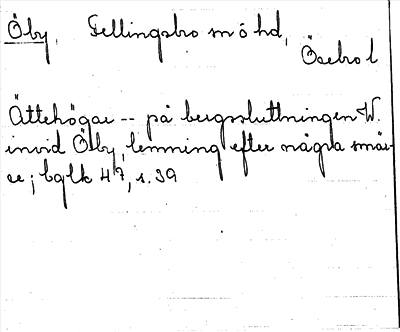 Öby, Fellingsbro sn ö hd,
Örebro l
Ättehögar -- på bergssluttningen W.
invid Öby, lemning efter några smär-
re; bglk 4/7, s. 39